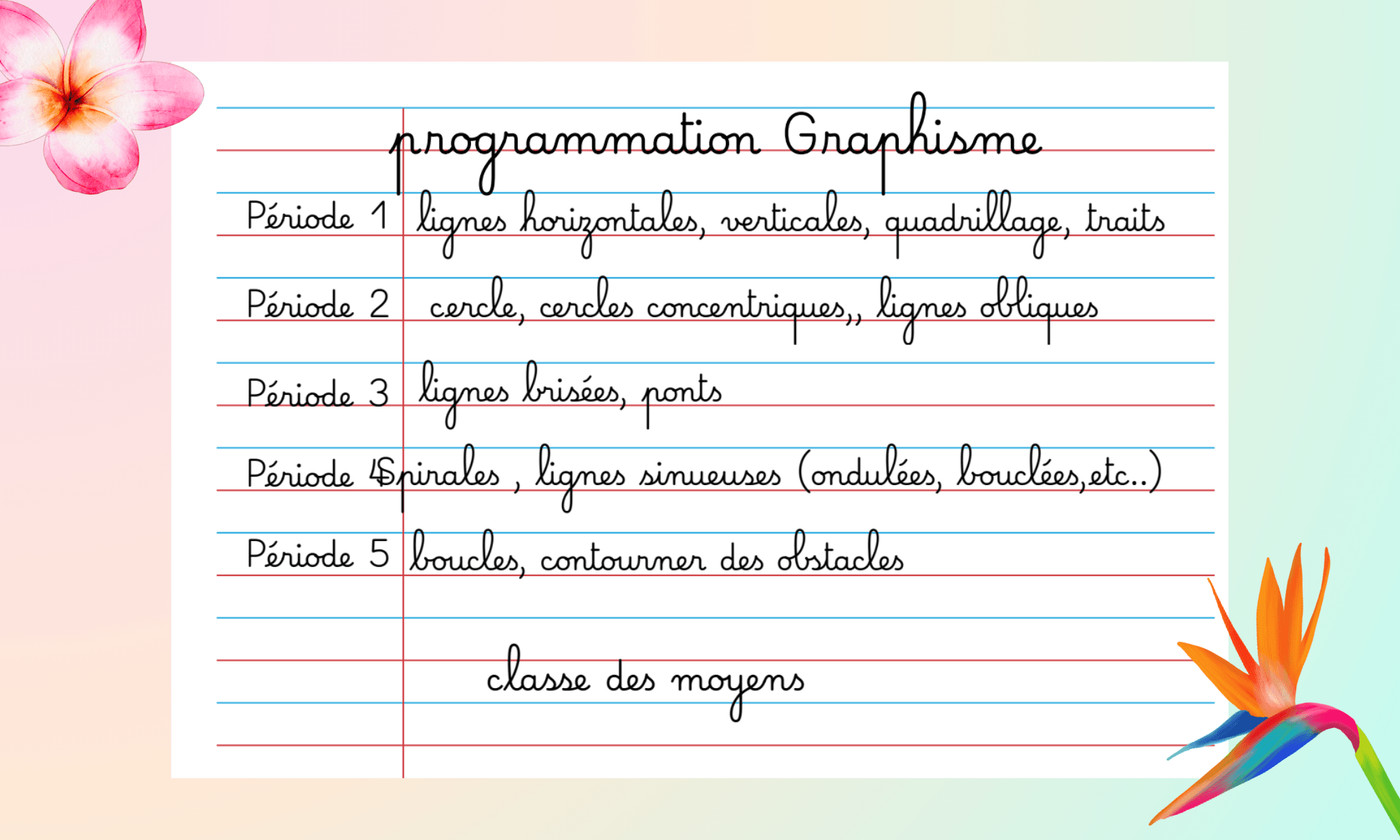 programmation Graphisme
Période 1 lignes horizontales, verticales, quadrillage, traits
Période 2 cercle, cercles concentriques,, lignes obliques
Période 3 lignes brisées, ponts
Période 4 Spirales , lignes sinueuses (ondulées, bouclées,etc..)
Période 5 boucles, contourner des obstacles
classe des moyens